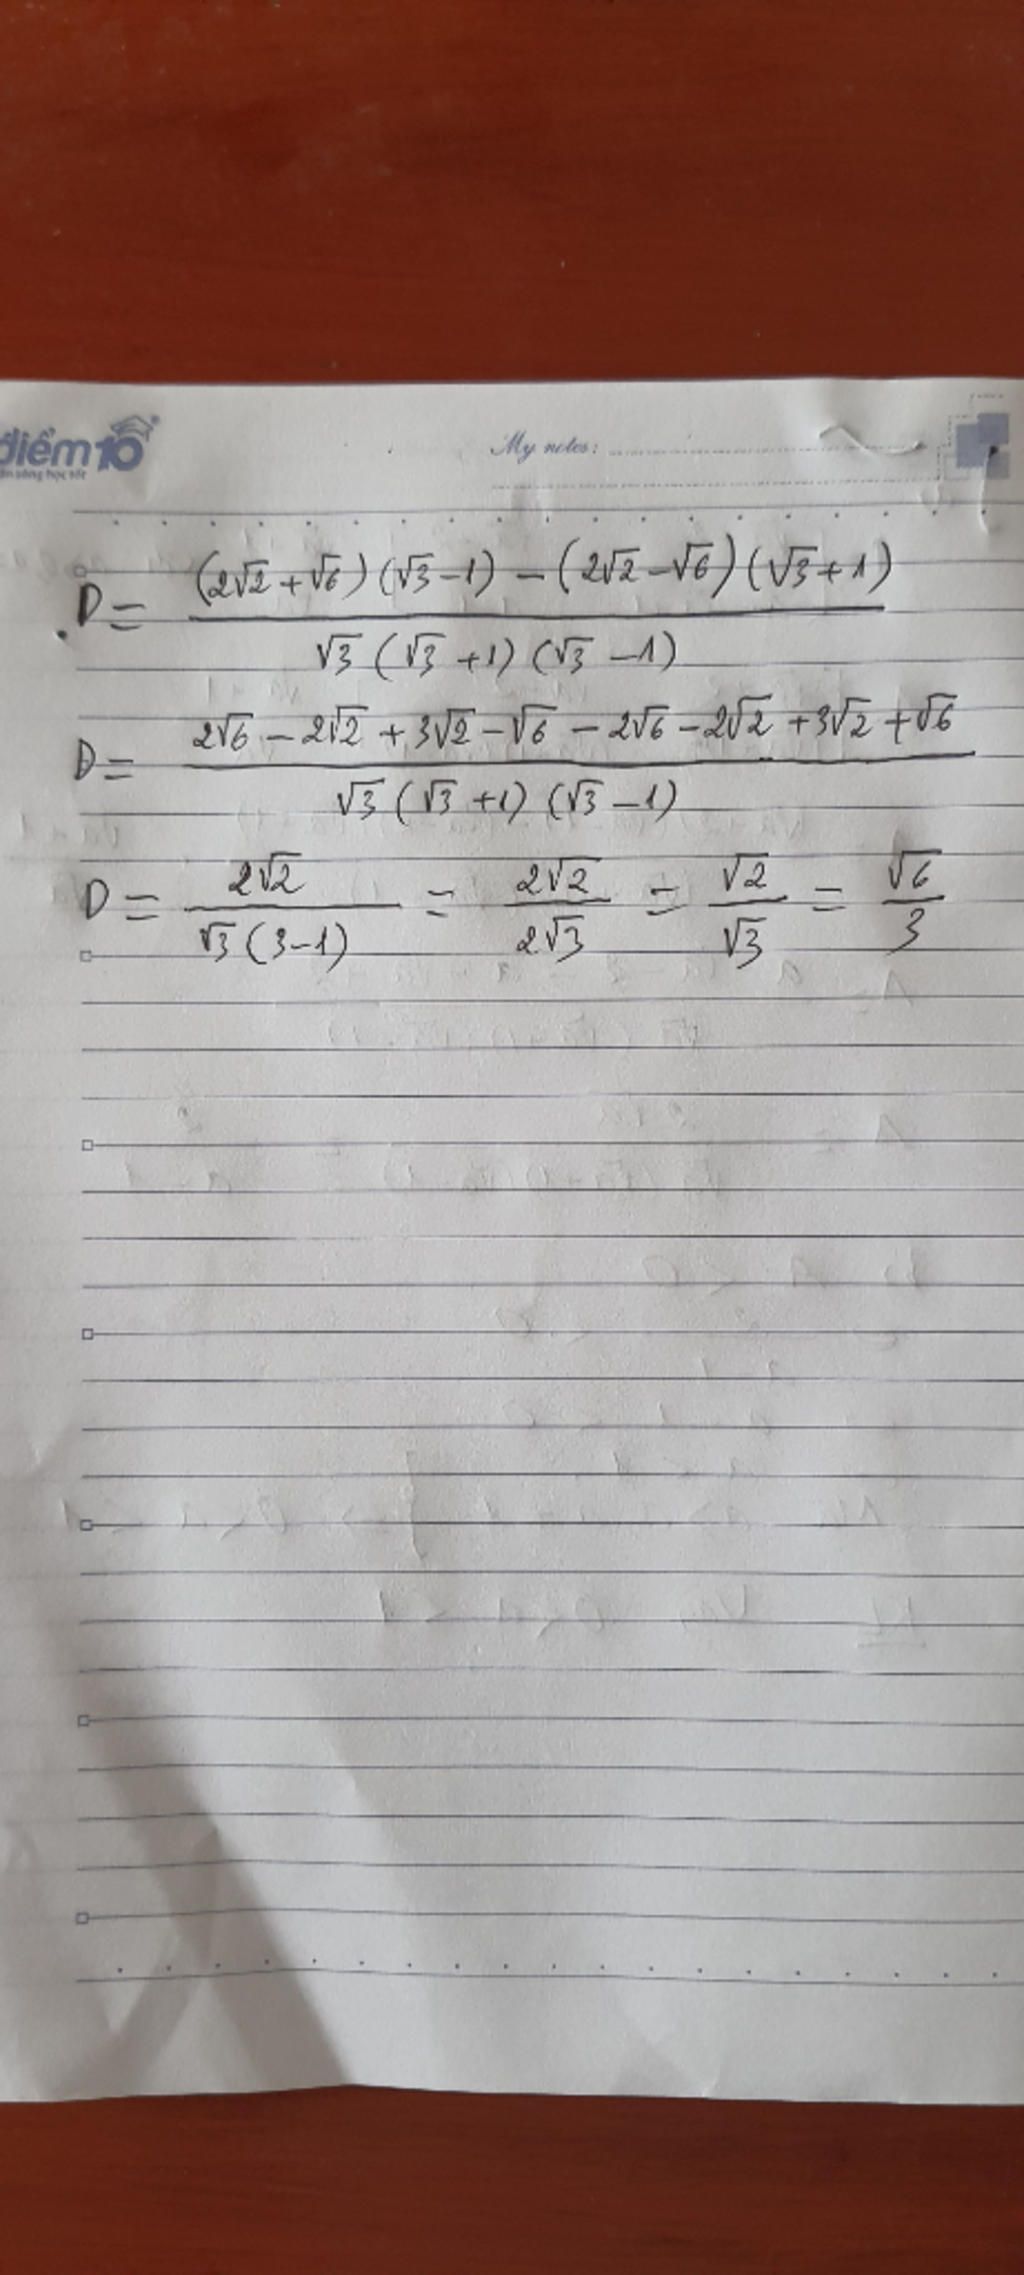 điểm10
My notes:
D = \frac{(2\sqrt{2} + \sqrt{6})(\sqrt{3} - 1) - (2\sqrt{2} - \sqrt{6})(\sqrt{3} + 1)}{\sqrt{3}(\sqrt{3} + 1)(\sqrt{3} - 1)}
D = \frac{2\sqrt{6} - 2\sqrt{2} + 3\sqrt{2} - \sqrt{6} - 2\sqrt{6} - 2\sqrt{2} + 3\sqrt{2} + \sqrt{6}}{\sqrt{3}(\sqrt{3} + 1)(\sqrt{3} - 1)}
D = \frac{2\sqrt{2}}{\sqrt{3}(3 - 1)} = \frac{2\sqrt{2}}{2\sqrt{3}} = \frac{\sqrt{2}}{\sqrt{3}} = \frac{\sqrt{6}}{3}